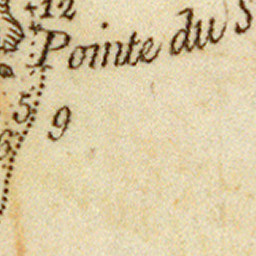 12
Pointe du S
5 9
6